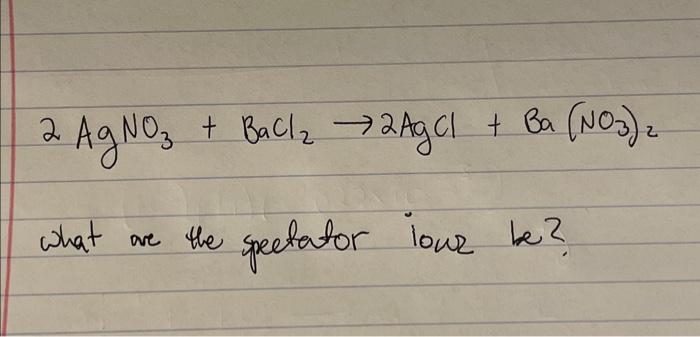 2 AgNO₃ + BaCl₂ → 2AgCl + Ba(NO₃)₂
what are the spectator ions be?